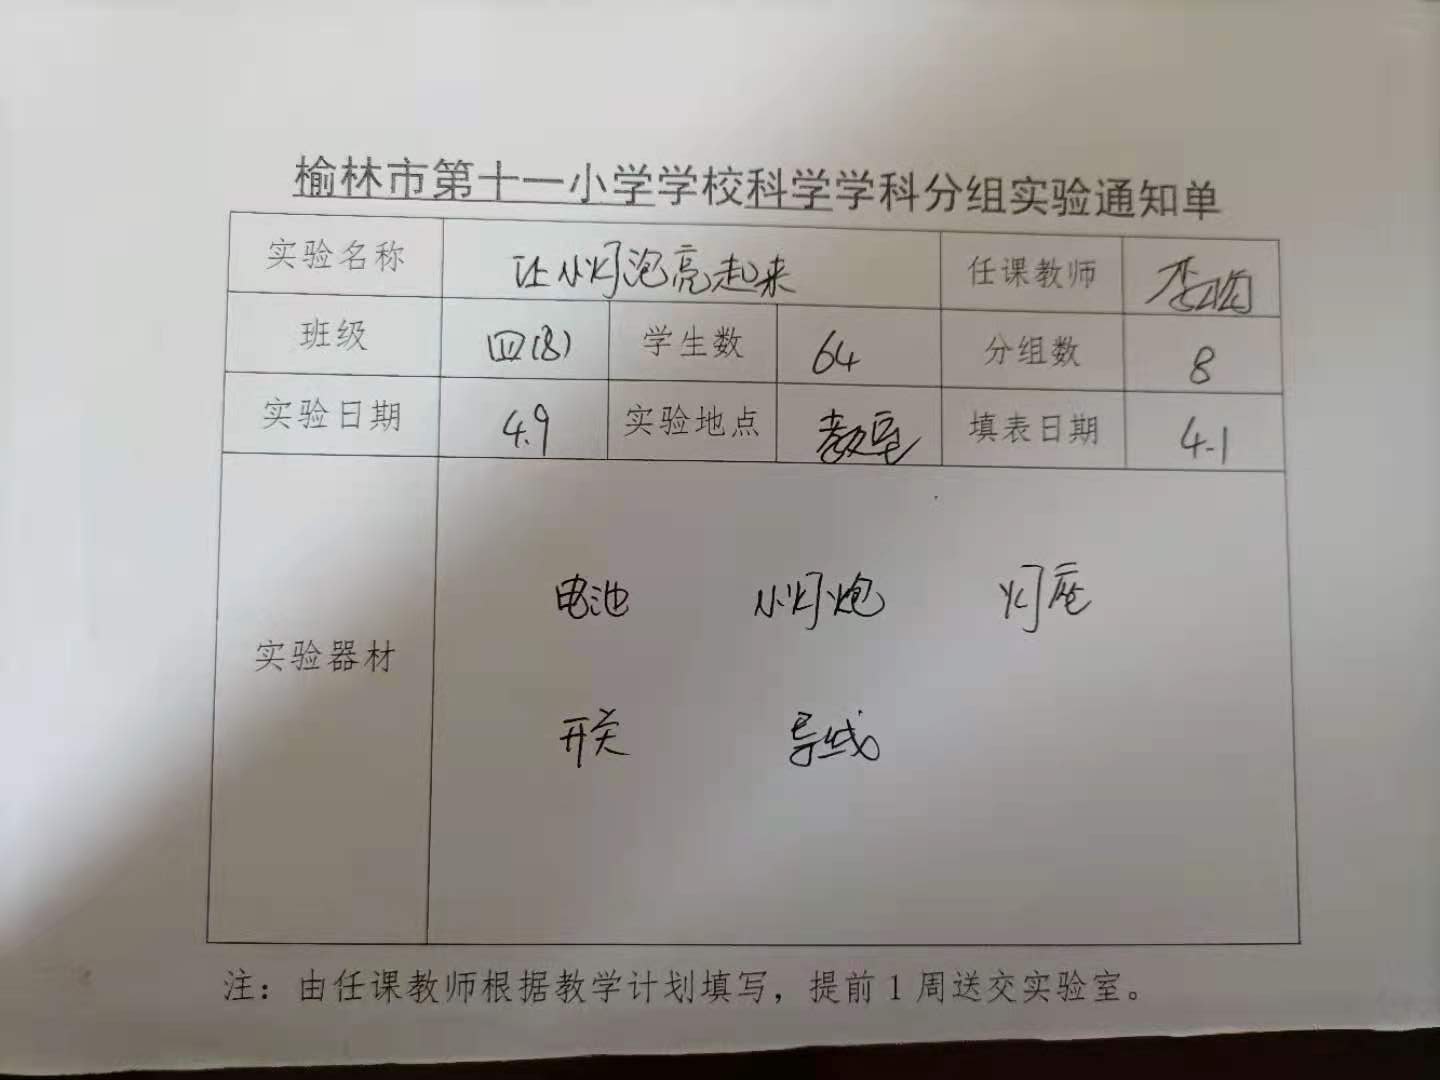 榆林市第十一小学学校科学学科分组实验通知单
实验名称 让小灯泡亮起来 任课教师 李
班级 四(8) 学生数 64 分组数 8
实验日期 4.9 实验地点 教室 填表日期 4.1
电池 小灯炮 灯座
实验器材
开关 导线
注：由任课教师根据教学计划填写，提前1周送交实验室。